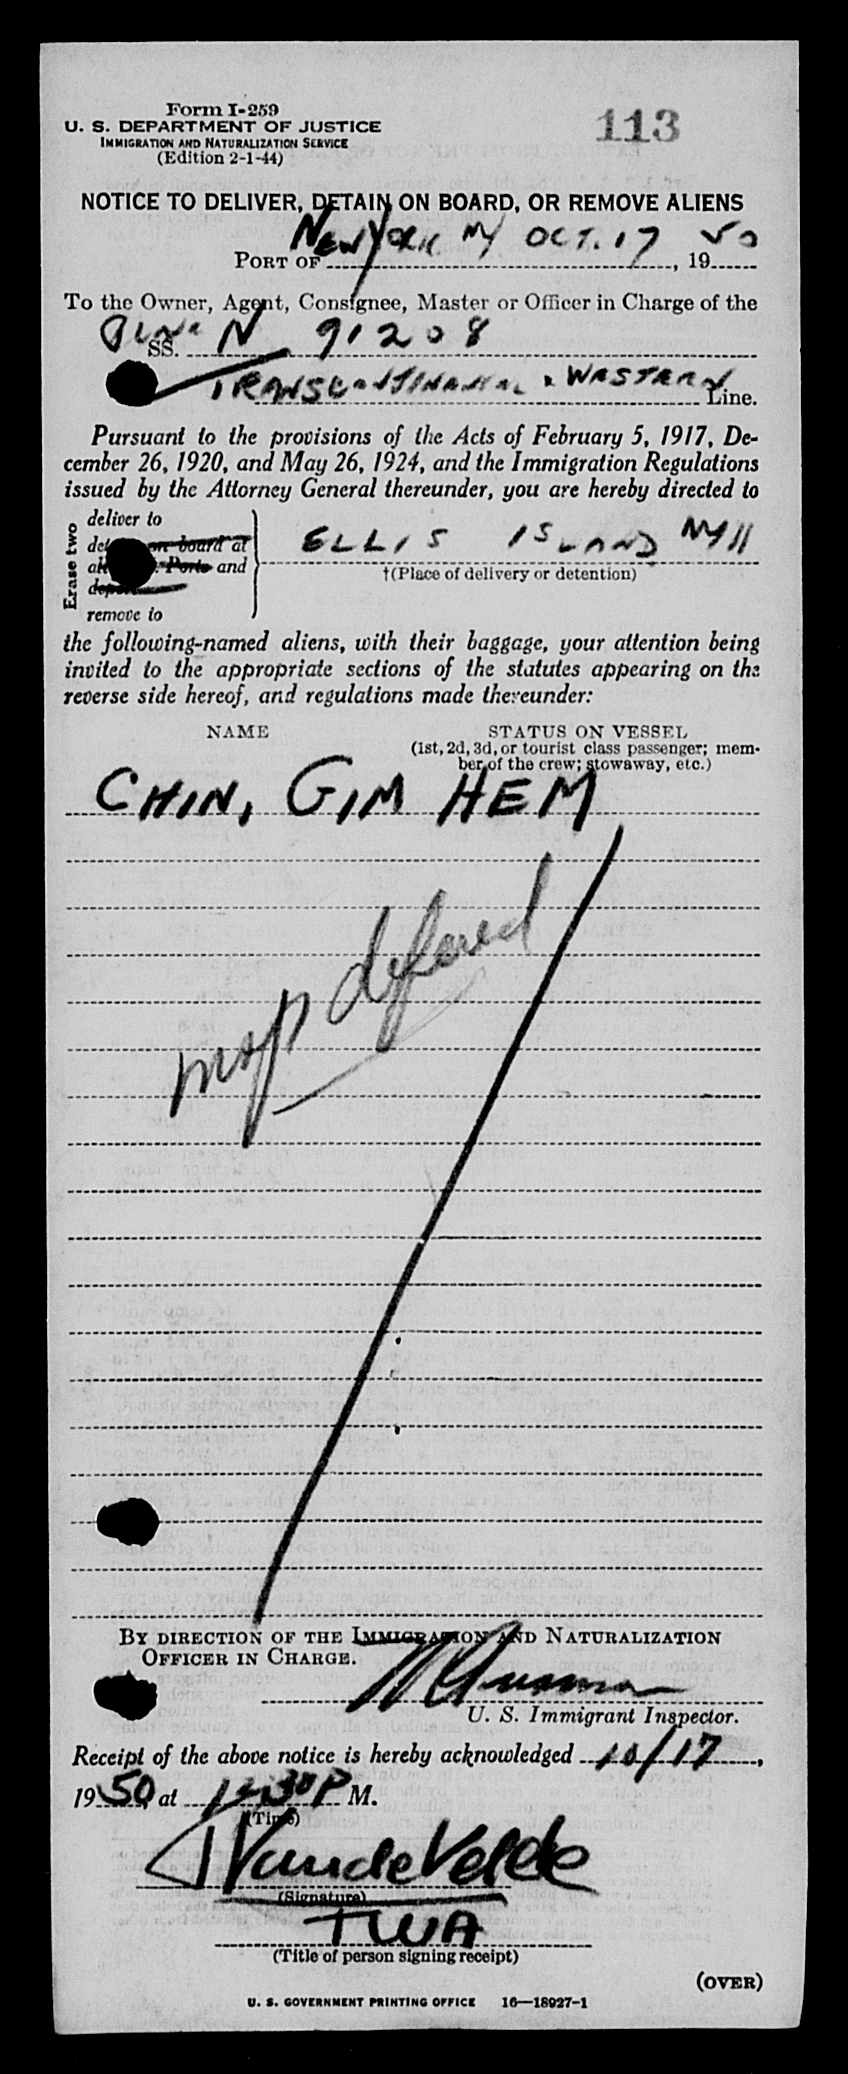 Form I-259
113
U. S. DEPARTMENT OF JUSTICE
IMMIGRATION AND NATURALIZATION SERVICE
(Edition 2-1-44)
NOTICE TO DELIVER, DETAIN ON BOARD, OR REMOVE ALIENS
PORT OF New York NY OCT. 17, 1950
To the Owner, Agent, Consignee, Master or Officer in Charge of the
SS. Plane N 91208
TRANSCONTINENTAL & WESTERN Line.
Pursuant to the provisions of the Acts of February 5, 1917, De-
cember 26, 1920, and May 26, 1924, and the Immigration Regulations
issued by the Attorney General thereunder, you are hereby directed to
Erase two
deliver to
on board at
and
remove to
ELLIS ISLAND NY
†(Place of delivery or detention)
the following-named aliens, with their baggage, your attention being
invited to the appropriate sections of the statutes appearing on the
reverse side hereof, and regulations made thereunder:
NAME STATUS ON VESSEL
(1st, 2d, 3d, or tourist class passenger; mem-
ber of the crew; stowaway, etc.)
CHIN, GIM HEM
defered
BY DIRECTION OF THE IMMIGRATION AND NATURALIZATION
OFFICER IN CHARGE.
U. S. Immigrant Inspector.
Receipt of the above notice is hereby acknowledged 10/17,
1950, at 12:30 P M.
(Time)
VandeVelde
(Signature)
TWA
(Title of person signing receipt)
(OVER)
U. S. GOVERNMENT PRINTING OFFICE 16—18927-1